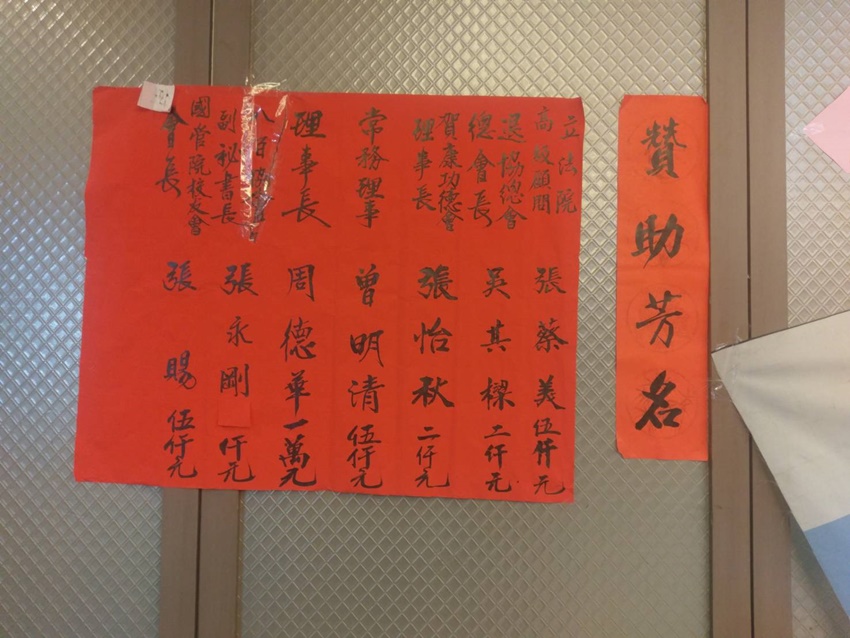 贊助芳名
立法院
高級顧問
張蔡美伍仟元
退協總會
總會長
吳其樑二仟元
賀康功德會
理事長
張怡秋二仟元
常務理事
曾明清伍仟元
理事長
周德華一萬元
副秘書長
張永剛
仟元
國管院校友會
會長
張賜伍仟元